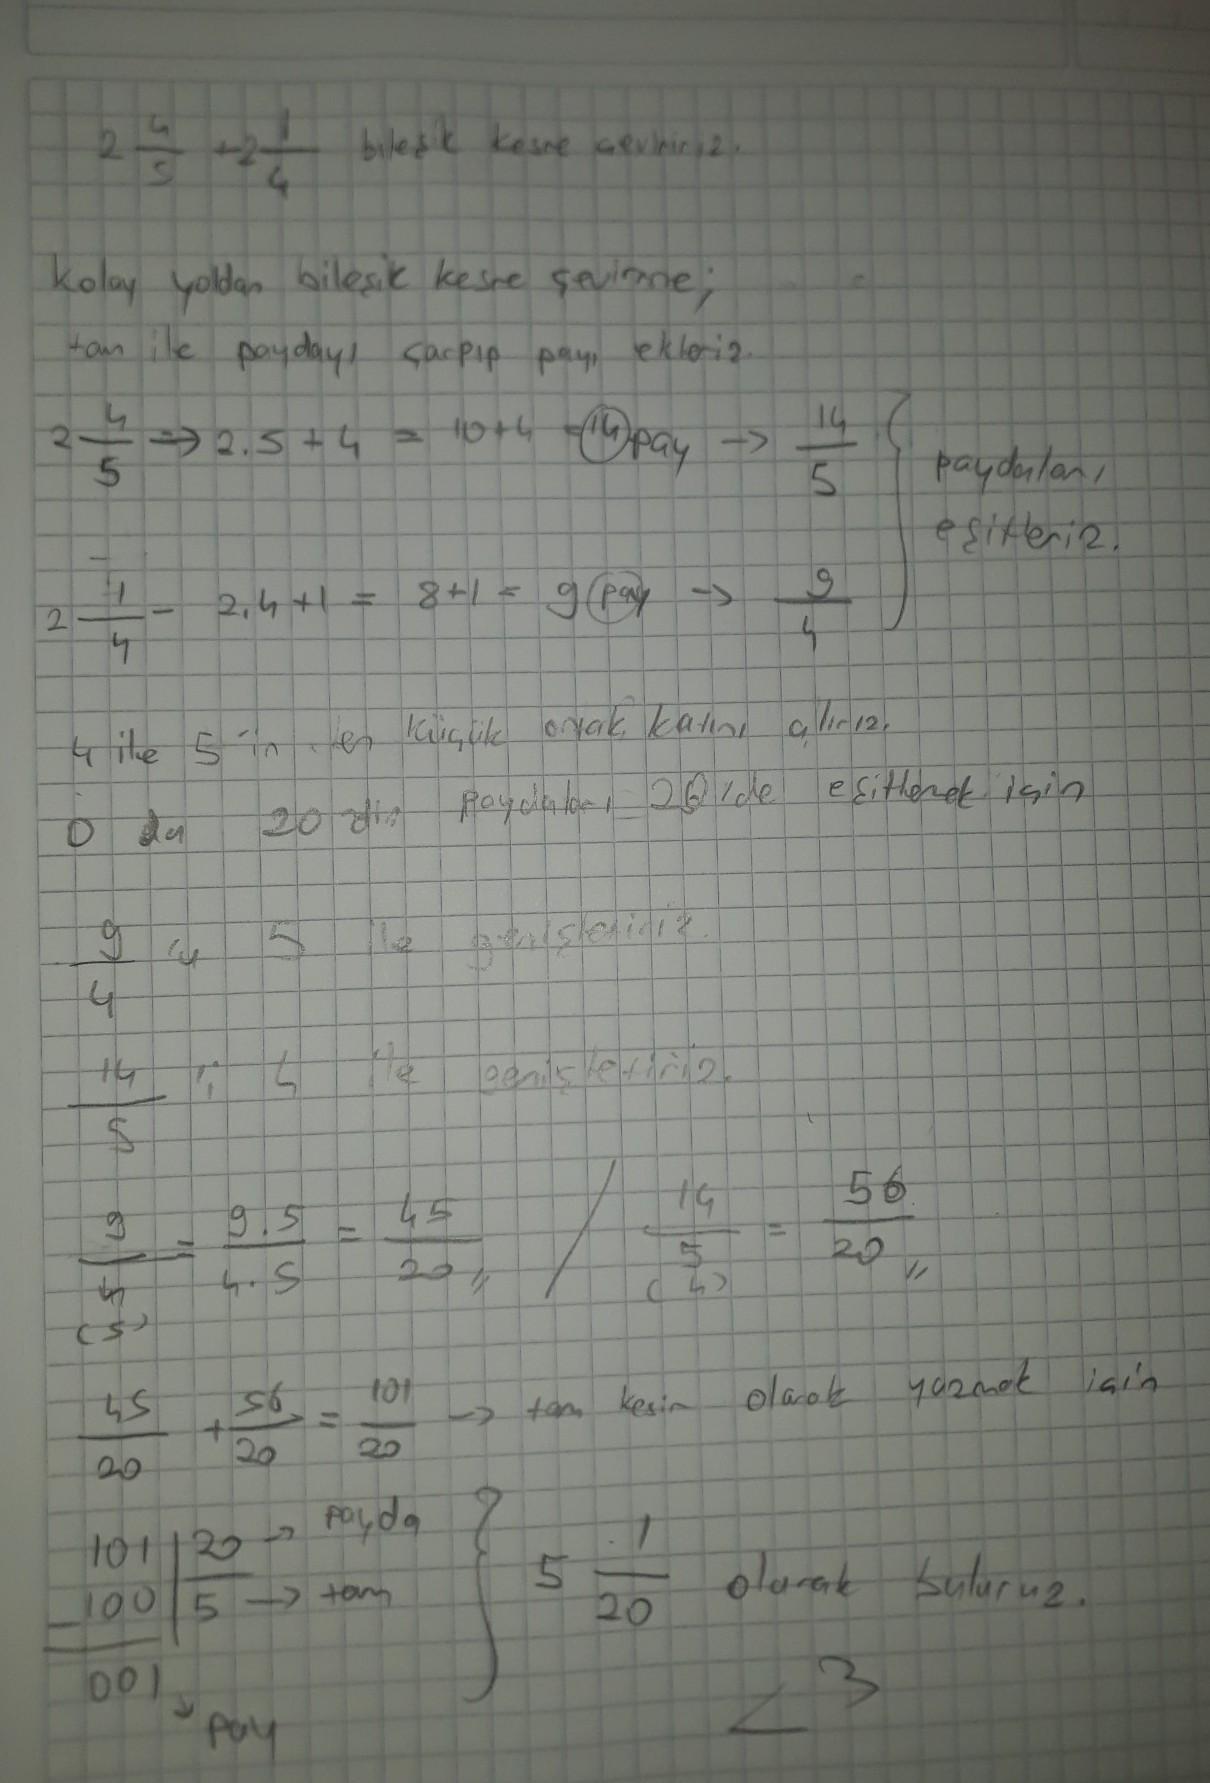 2 4/5 + 2 1/4 bileşik kesre çeviririz.
Kolay yoldan bileşik kesre çevirme;
tam ile paydayı çarpıp payı ekleriz.
2 4/5 => 2.5+4 = 10+4 = 14 pay -> 14/5
paydaları
eşitleriz.
2 1/4 - 2.4+1 = 8+1 = 9 pay -> 9/4
4 ile 5 in en küçük ortak katını alırız.
O da 20 dir paydaları 20 'de eşitlemek için
9/4 ü 5 ile genişletiriz.
14/5 i 4 ile genişletiriz.
9/4 (5) = 9.5/4.5 = 45/20 " / 14/5 (4) = 56/20 "
45/20 + 56/20 = 101/20 -> tam kesir olarak yazmak için
101 | 20 -> payda
-100 | 5 -> tam
001 -> pay
5 1/20 olarak buluruz.
<3